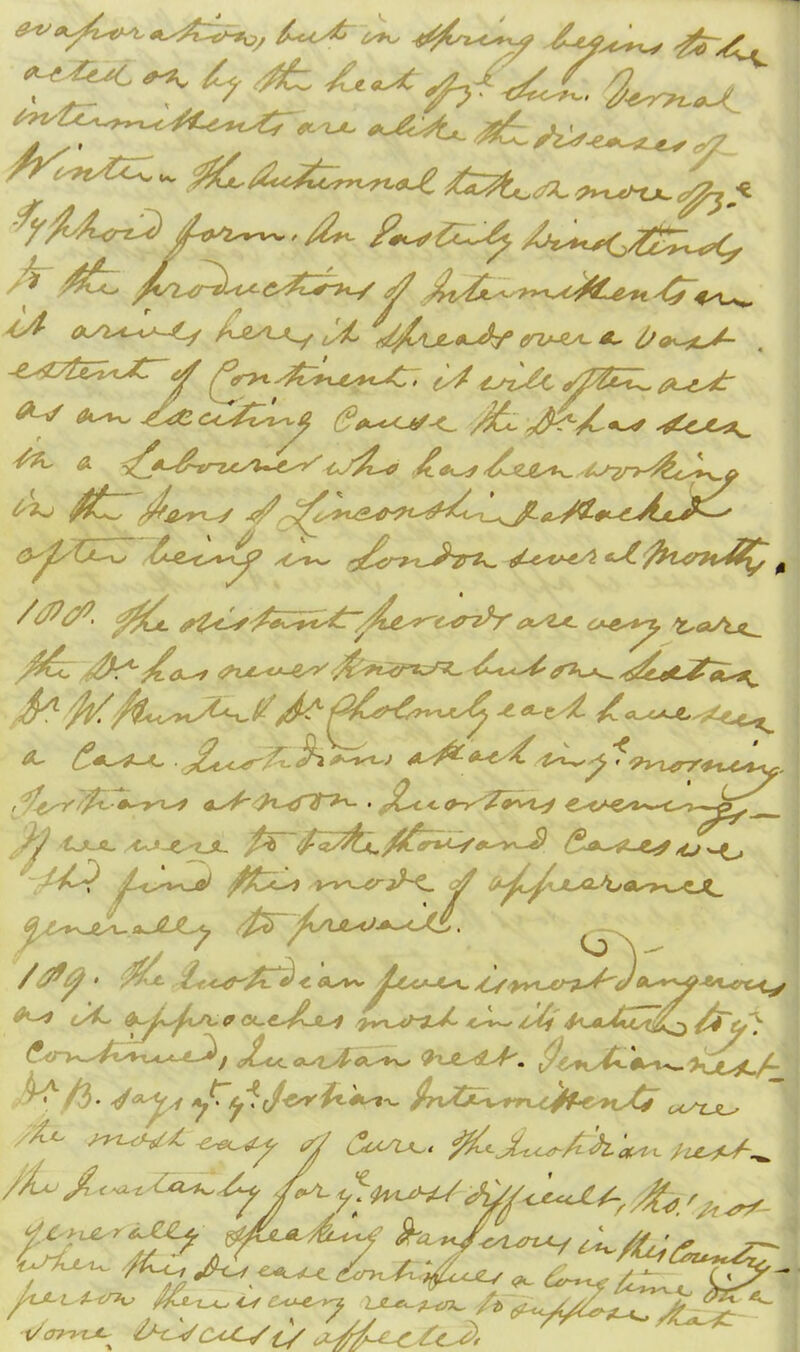 evaporation, but in spring begins to be
acted on by the heat of ye sun. Vernal
intermittents are alike the diseases of
Winter. The Autumnal take on more of ye
Typhoid form. An Easterly Wind tends
to the productions of Intermittents
it arises here, it spreads over a Vast
extent of Continent. it will often act
as an exciting Cause. the Dr has seen
in a Labourer who has been working
in the Fens of Lincolnshire attacked
after being in London several Months.
188. The distant periods are very rare
the Dr has never known but one Sextan
Dr W. Hunter & Dr Cholmely each have seen
a Case. Quotidians attack in ye morning
Tertians at noon. Quartans evening
If we were to take thousand Cases we
shd find this mode of appearance
generally to prevail.
189. The Quotidian fever is most dangerous
as it approaches most in its nature to ye
Continued, Quartan next. Tertian next
Dr B. says yt ye Tertian Intermittents are
the most easy of Cure. The Quotidian next
the Quartan by far ye most difficult, tho' not
generally speaking dangerous in this Country
when this disease continues a long time on a
person there is every reason to suppose that
some Viscus is affected.